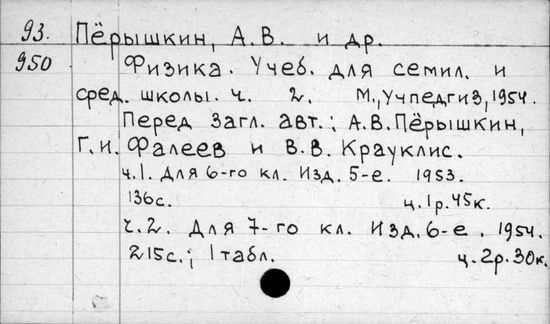 93. Пёрышкин, А.В. и др.
950 Физика. Учеб. для семил. и
сред. школы. ч. 2. М., Учпедгиз, 1954.
Перед загл. авт.: А.В. Пёрышкин,
Г.И. Фалеев и В.В. Крауклис.
ч.1. Для 6-го кл. Изд. 5-е. 1953.
136с. ц. 1р. 45к.
ч.2. Для 7-го кл. Изд. 6-е. 1954.
215с.; 1 табл. ц. 2р. 30к.